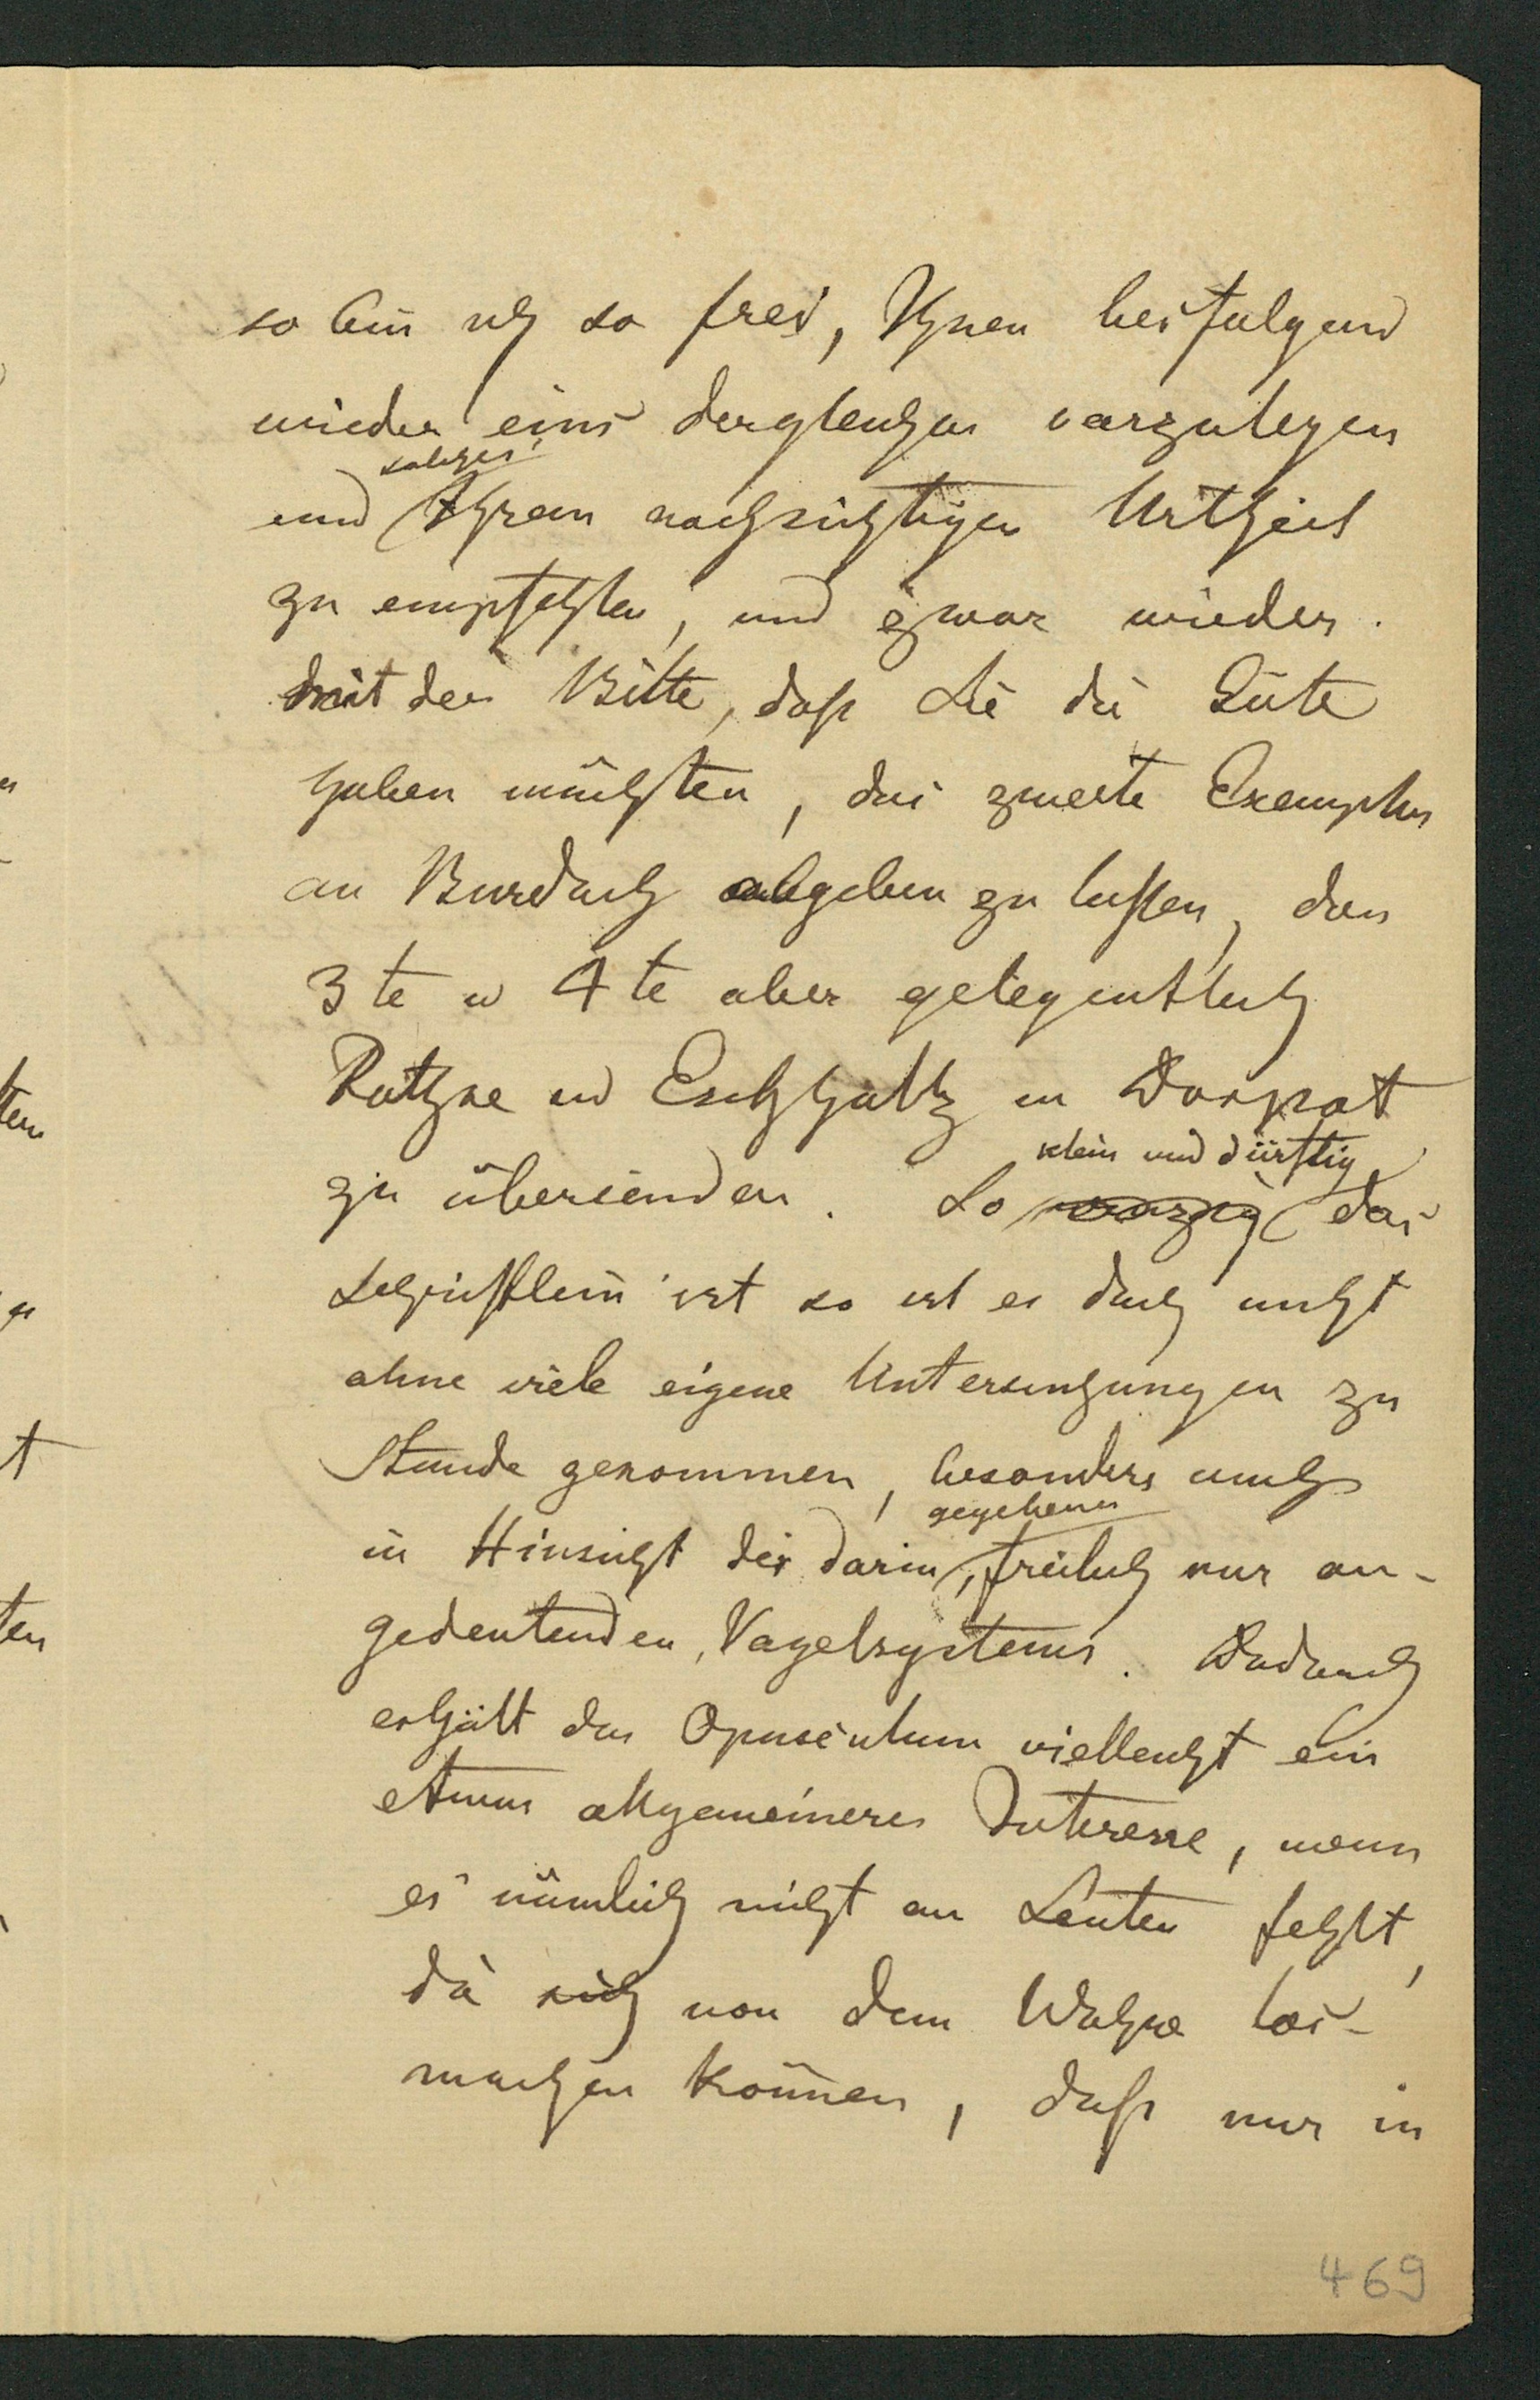 so bin ich so frei, Ihnen beifolgend
wieder eins dergleichen vorzulegen
solches
und Ihrem nachsichtigen Urtheil
zu empfehlen, und zwar wieder
mit der Bitte, daß Sie die Güte
haben möchten, das zweite Exemplar
an Burdach abgeben zu lassen, den
3te u 4te aber gelegentlich
Rathke und Eschholtz in Dorpat
klein und dürftig
zu übersenden. So das
Schriftlein ist so ist es doch nicht
ohne viele eigene Untersuchungen zu
Stande gekommen, besonders auch
gegebenen
in Hinsicht des darin, freilich nur an-
gedeutenden, Vogelsystems. Dadurch
erhält das Opusculum vielleicht ein
etwas allgemeineres Interesse, wenn
es nämlich nicht an Leuten fehlt,
die sich von dem Wahne los-
machen können, daß nur in
469